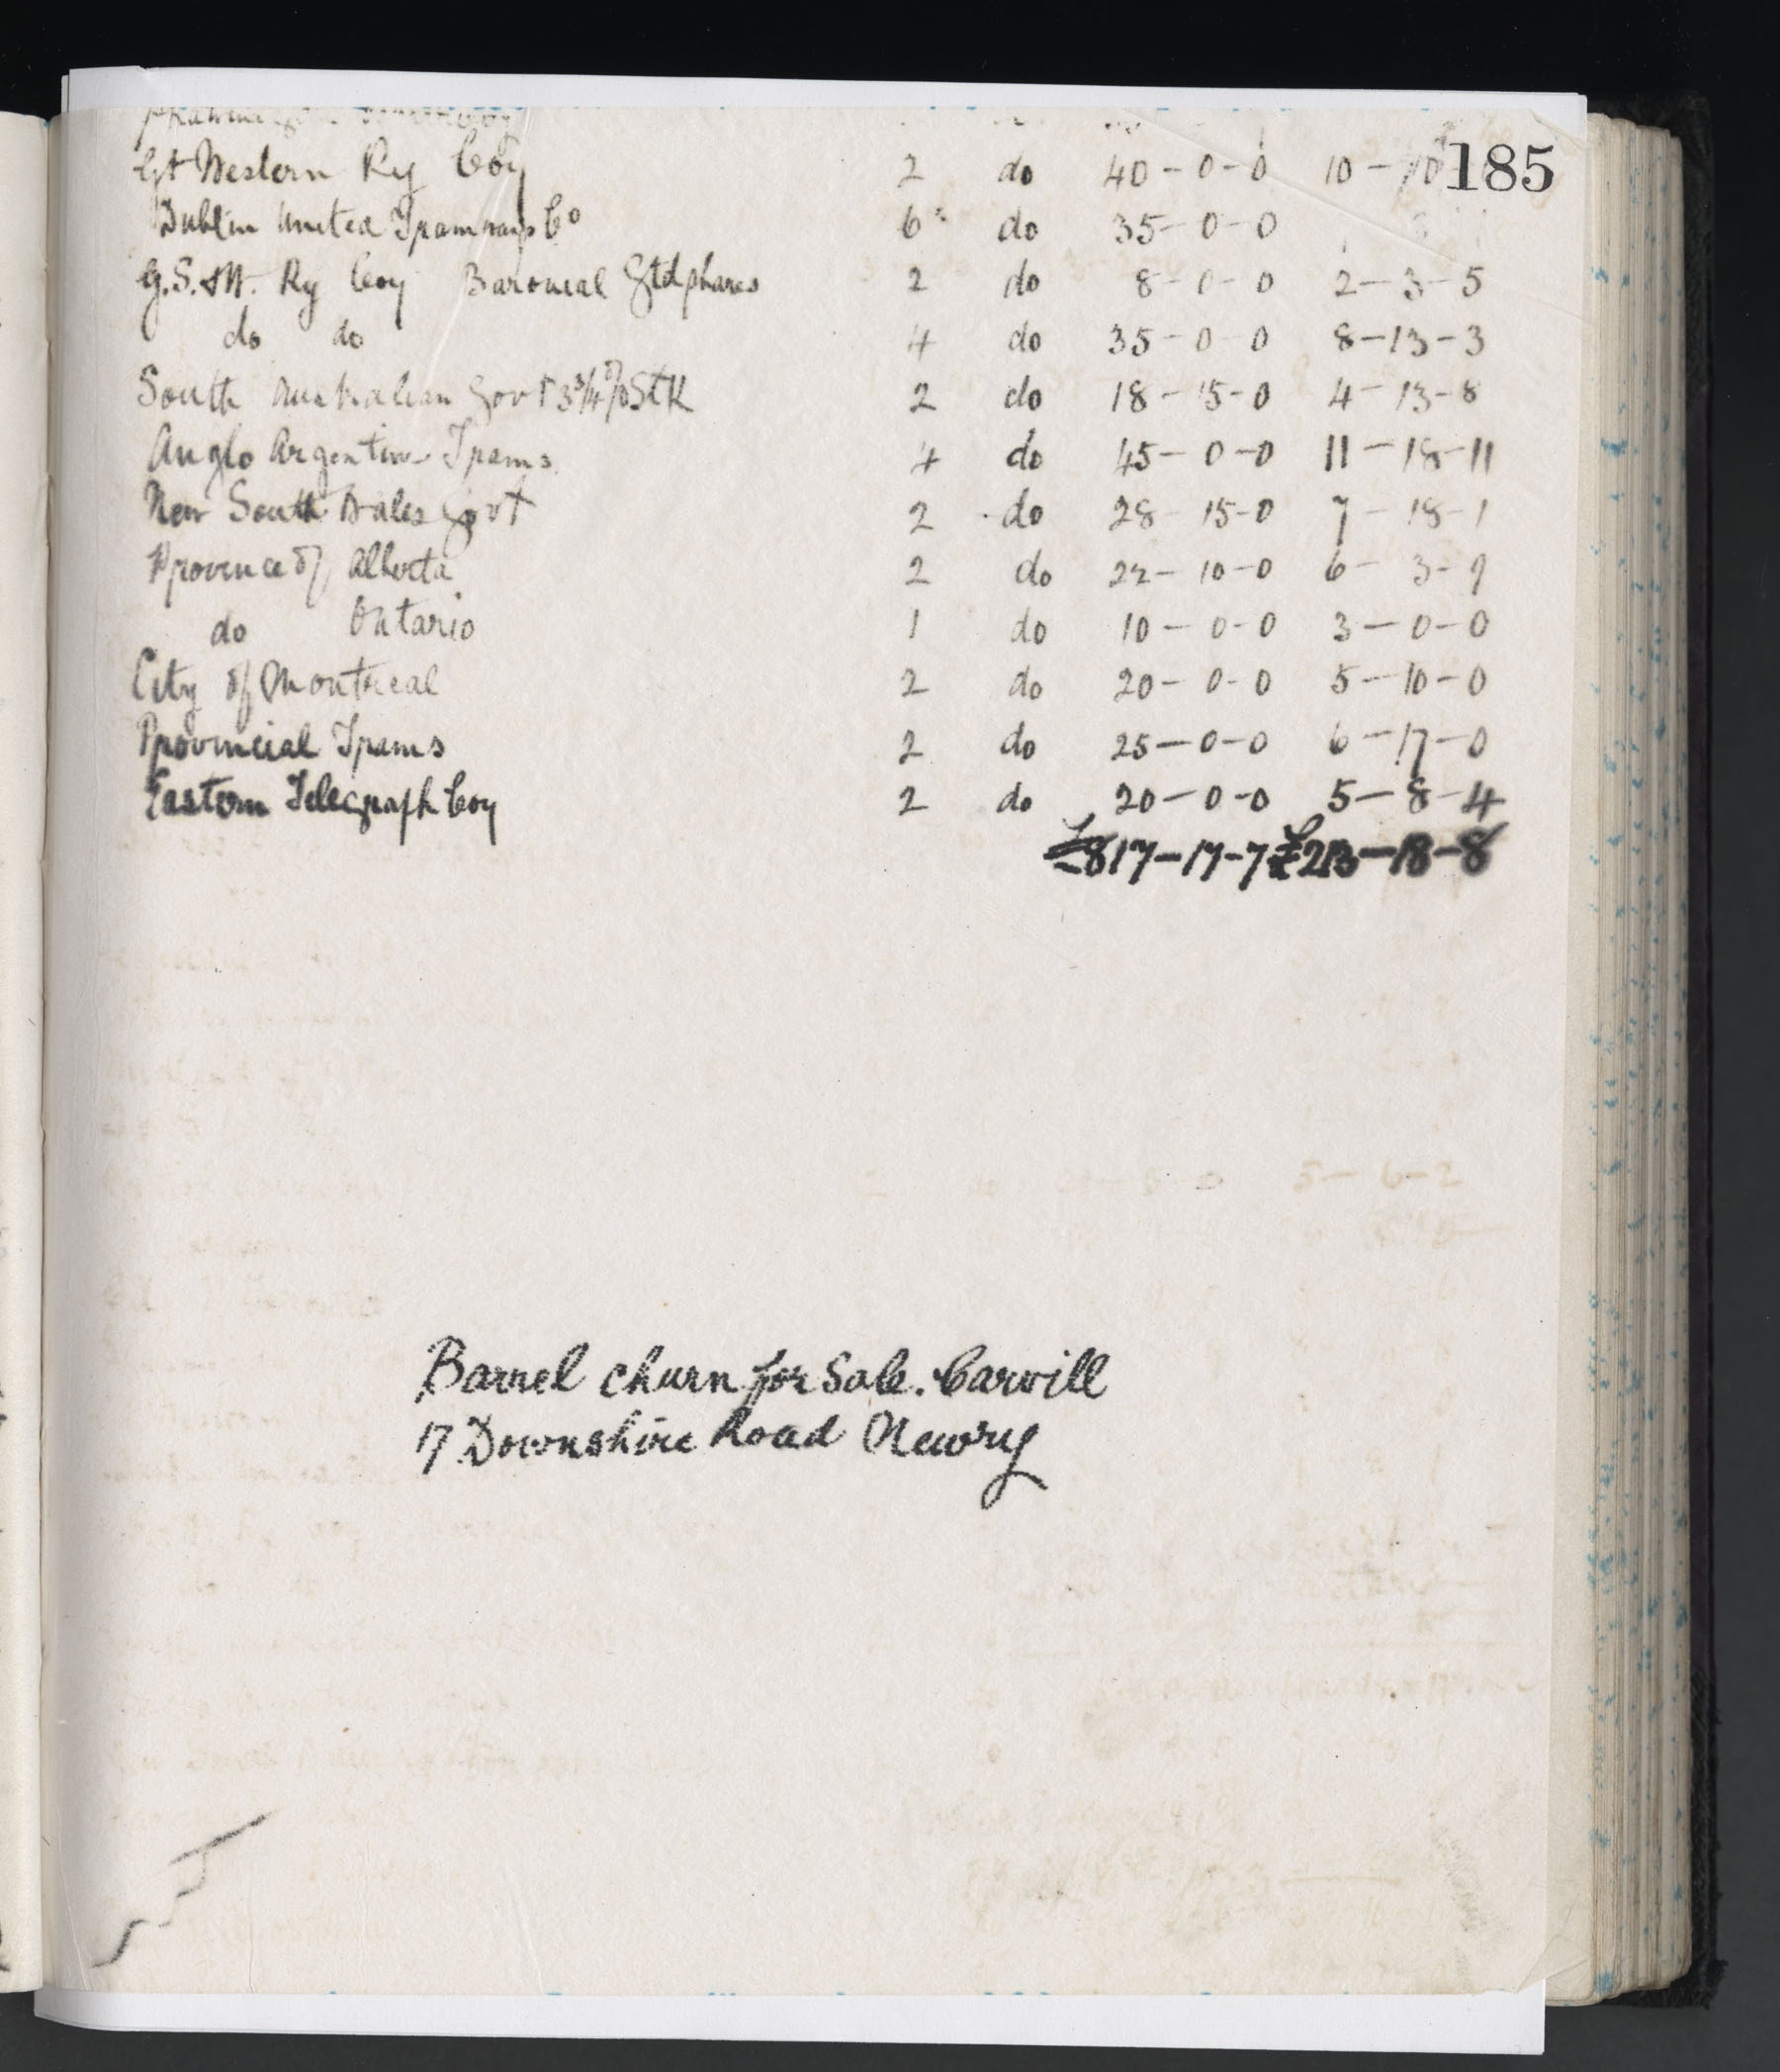 185
Gt Western Ry Coy 2 do 40-0-0 10-10
Dublin United Tramways Co 6 do 35-0-0
G.S.&W. Ry Coy Baronial Gtd shares 2 do 8-0-0 2-3-5
do do 4 do 35-0-0 8-13-3
South Australian Govt 3 3/4 % Stk 2 do 18-15-0 4-13-8
Anglo Argentine Trams. 4 do 45-0-0 11-18-11
New South Wales Govt 2 do 28-15-0 7-18-1
Province of Alberta 2 do 22-10-0 6-3-9
do Ontario 1 do 10-0-0 3-0-0
City of Montreal 2 do 20-0-0 5-10-0
Provincial Trams 2 do 25-0-0 6-17-0
Eastern Telegraph Coy 2 do 20-0-0 5-8-4
£817-17-7 £213-18-8
Barrel churn for Sale. Carvill
17 Downshire Road Newry